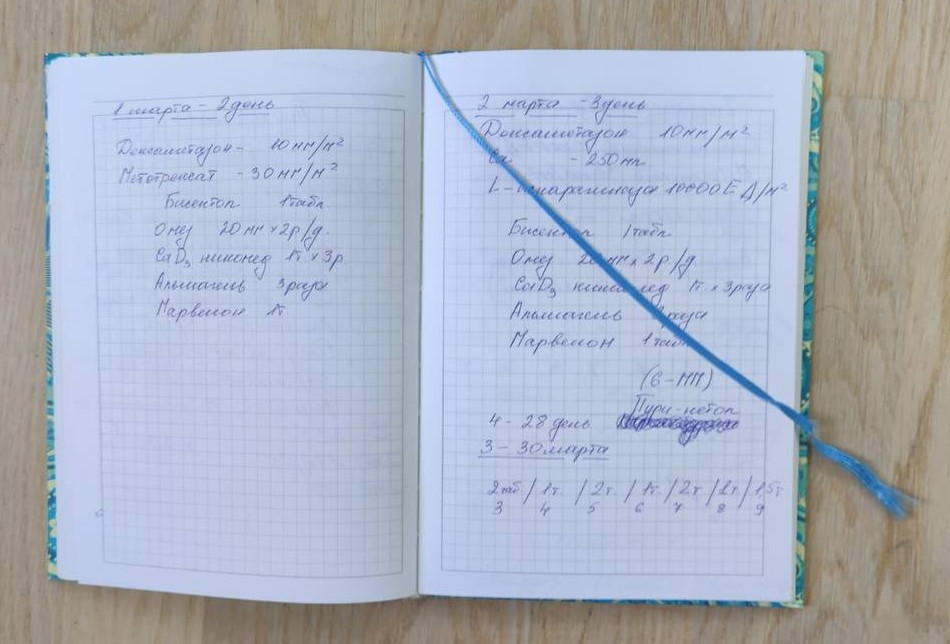 1 марта - 2 день
Дексаметазон - 10 мг/м²
Метотрексат - 30 мг/м²
Бисептол 1 табл
Омез 20 мг x 2р/д.
CaD₃ никомед 1т x 3р
Альмагель 3 раза
Марвелон 1т
2 марта - 3 день
Дексаметазон 10 мг/м²
- 250 мг
L-аспарагиназа 10000 ЕД/м²
Бисептол 1 табл
Омез 20 мг x 2р/д
CaD₃ никомед 1т. x 3 раза
Альмагель раза
Марвелон 1 табл
(6-МП)
Пури-нетол
4 - 28 день
3 - 30 марта
2 таб / 1т. / 2т. / 1т. / 2т / 1т. / 1,5т
3 4 5 6 7 8 9